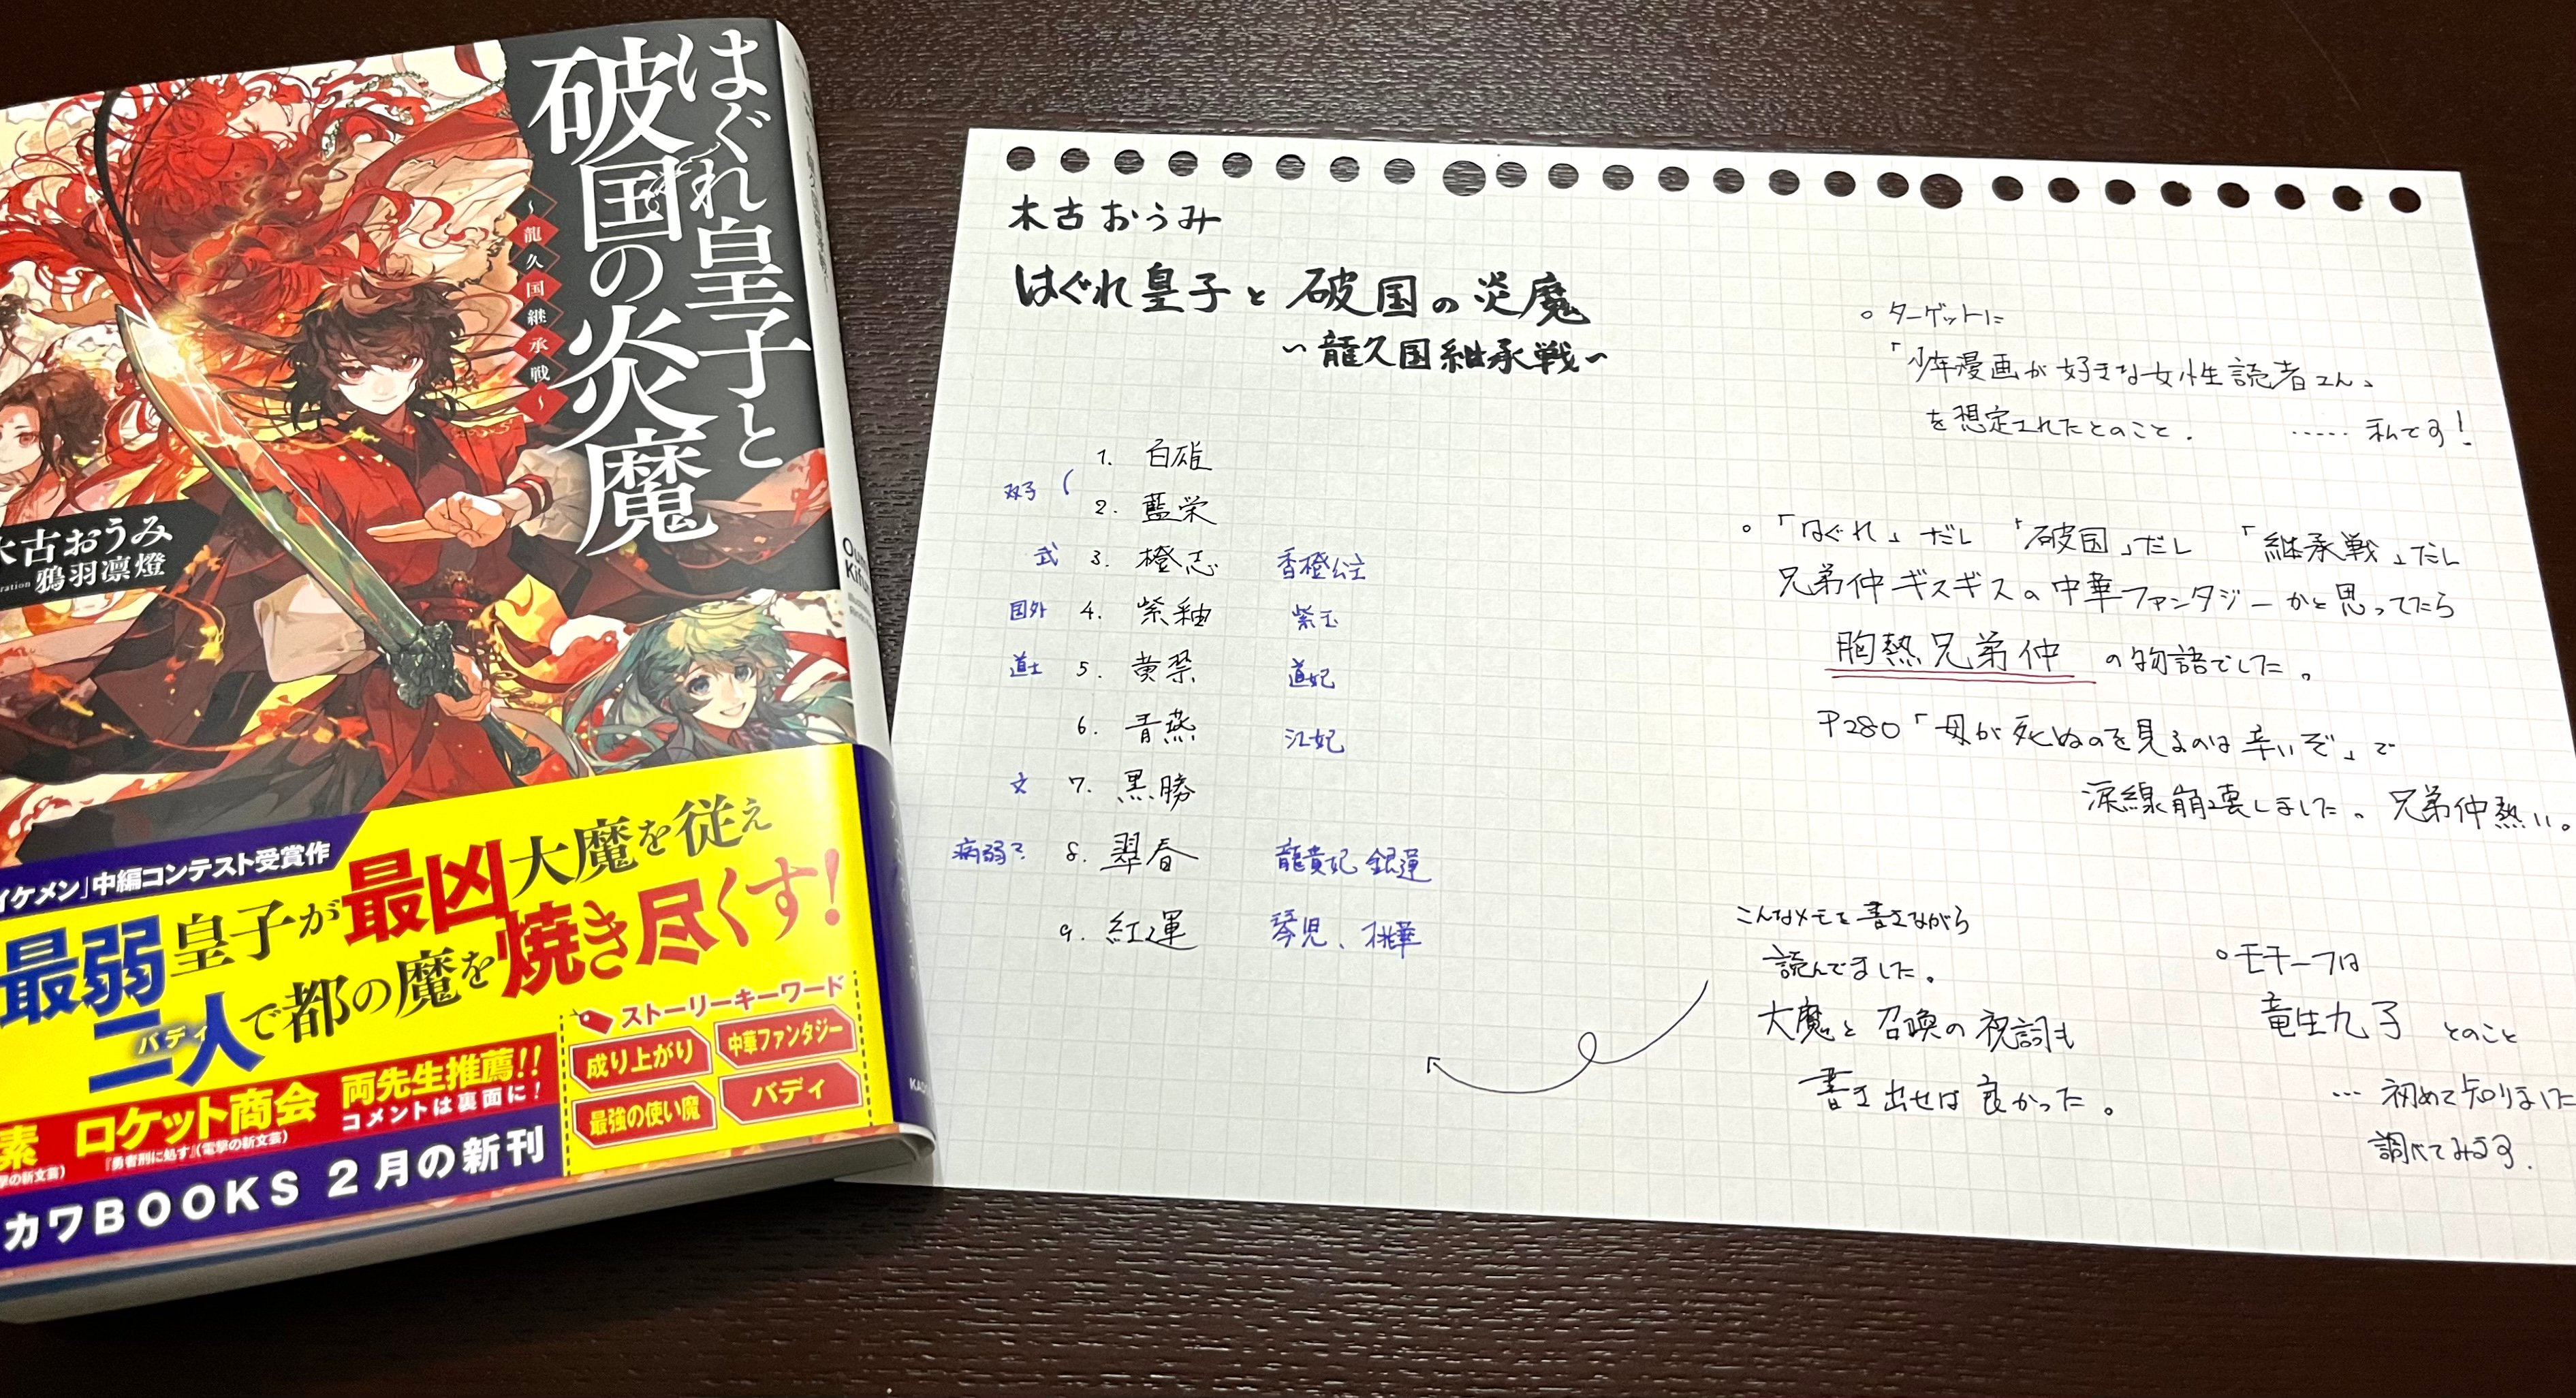 はぐれ皇子と
破国の炎魔
～龍久国継承戦～
木古おうみ
鴉羽凛燈
イケメン」中編コンテスト受賞作
最弱皇子が最凶大魔を従え
二人で都の魔を焼き尽くす!
バディ
ストーリーキーワード
成り上がり
中華ファンタジー
最強の使い魔
バディ
素
ロケット商会
両先生推薦!!
コメントは裏面に!
『勇者刑に処す』(電撃の新文芸)
撃の新文芸)
カワBOOKS 2月の新刊
木古おうみ
はぐれ皇子と破国の炎魔
~龍久国継承戦~
双子
1. 白雄
2. 藍栄
武 3. 橙志 香橙公主
国外 4. 紫釉 紫玉
道士 5. 黄禁 道妃
6. 青燕 江妃
文 7. 黒勝
病弱? 8. 翠春 龍貴妃 銀蓮
9. 紅運 琴児、桃華
○ ターゲットに
「少年漫画が好きな女性読者さん」
を想定されたとのこと. ……私です!
○「はぐれ」だし「破国」だし「継承戦」だし
兄弟仲ギスギスの中華ファンタジーかと思ってたら
胸熱兄弟仲の物語でした。
P280「母が死ぬのを見るのは辛いぞ」で
涙線崩壊しました。兄弟仲熱い。
こんなメモを書きながら
読んでました。
大魔と召喚の祝詞も
書き出せば良かった。
○モチーフは
竜生九子とのこと
…初めて知りました
調べてみます.